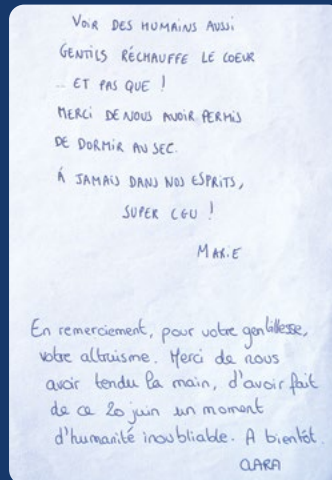 VOIR DES HUMAINS AUSSI
GENTILS RÉCHAUFFE LE COEUR
.. ET PAS QUE !
MERCI DE NOUS AVOIR PERMIS
DE DORMIR AU SEC.
À JAMAIS DANS NOS ESPRITS,
SUPER CEU !
MARIE
En remerciement, pour votre gentillesse,
votre altruisme. Merci de nous
avoir tendu la main, d'avoir fait
de ce 20 juin un moment
d'humanité inoubliable. A bientôt.
CLARA